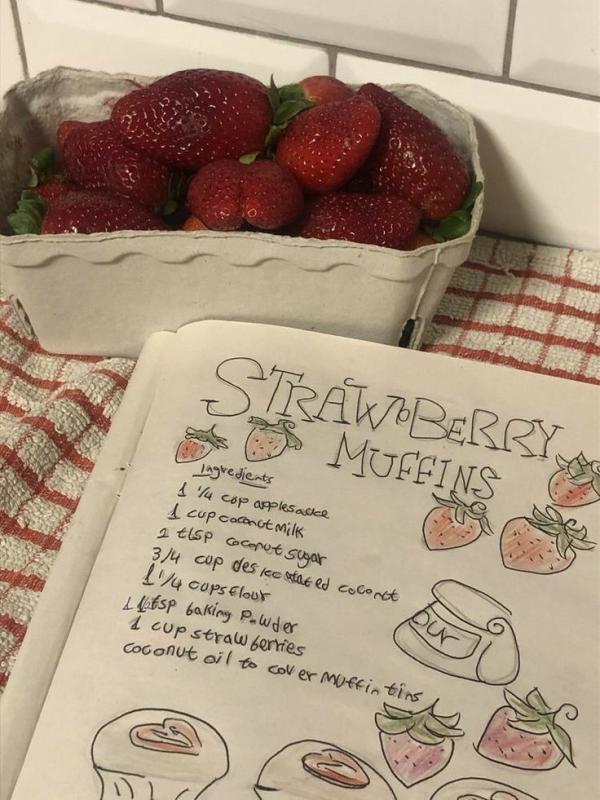 STRAWBERRY
MUFFINS
Ingredients
1 1/4 cup applesauce
1 cup coconut milk
2 tbsp coconut sugar
3/4 cup desiccated coconut
1 1/4 cups flour
1 tsp baking Powder
1 cup strawberries
coconut oil to cover muffin tins